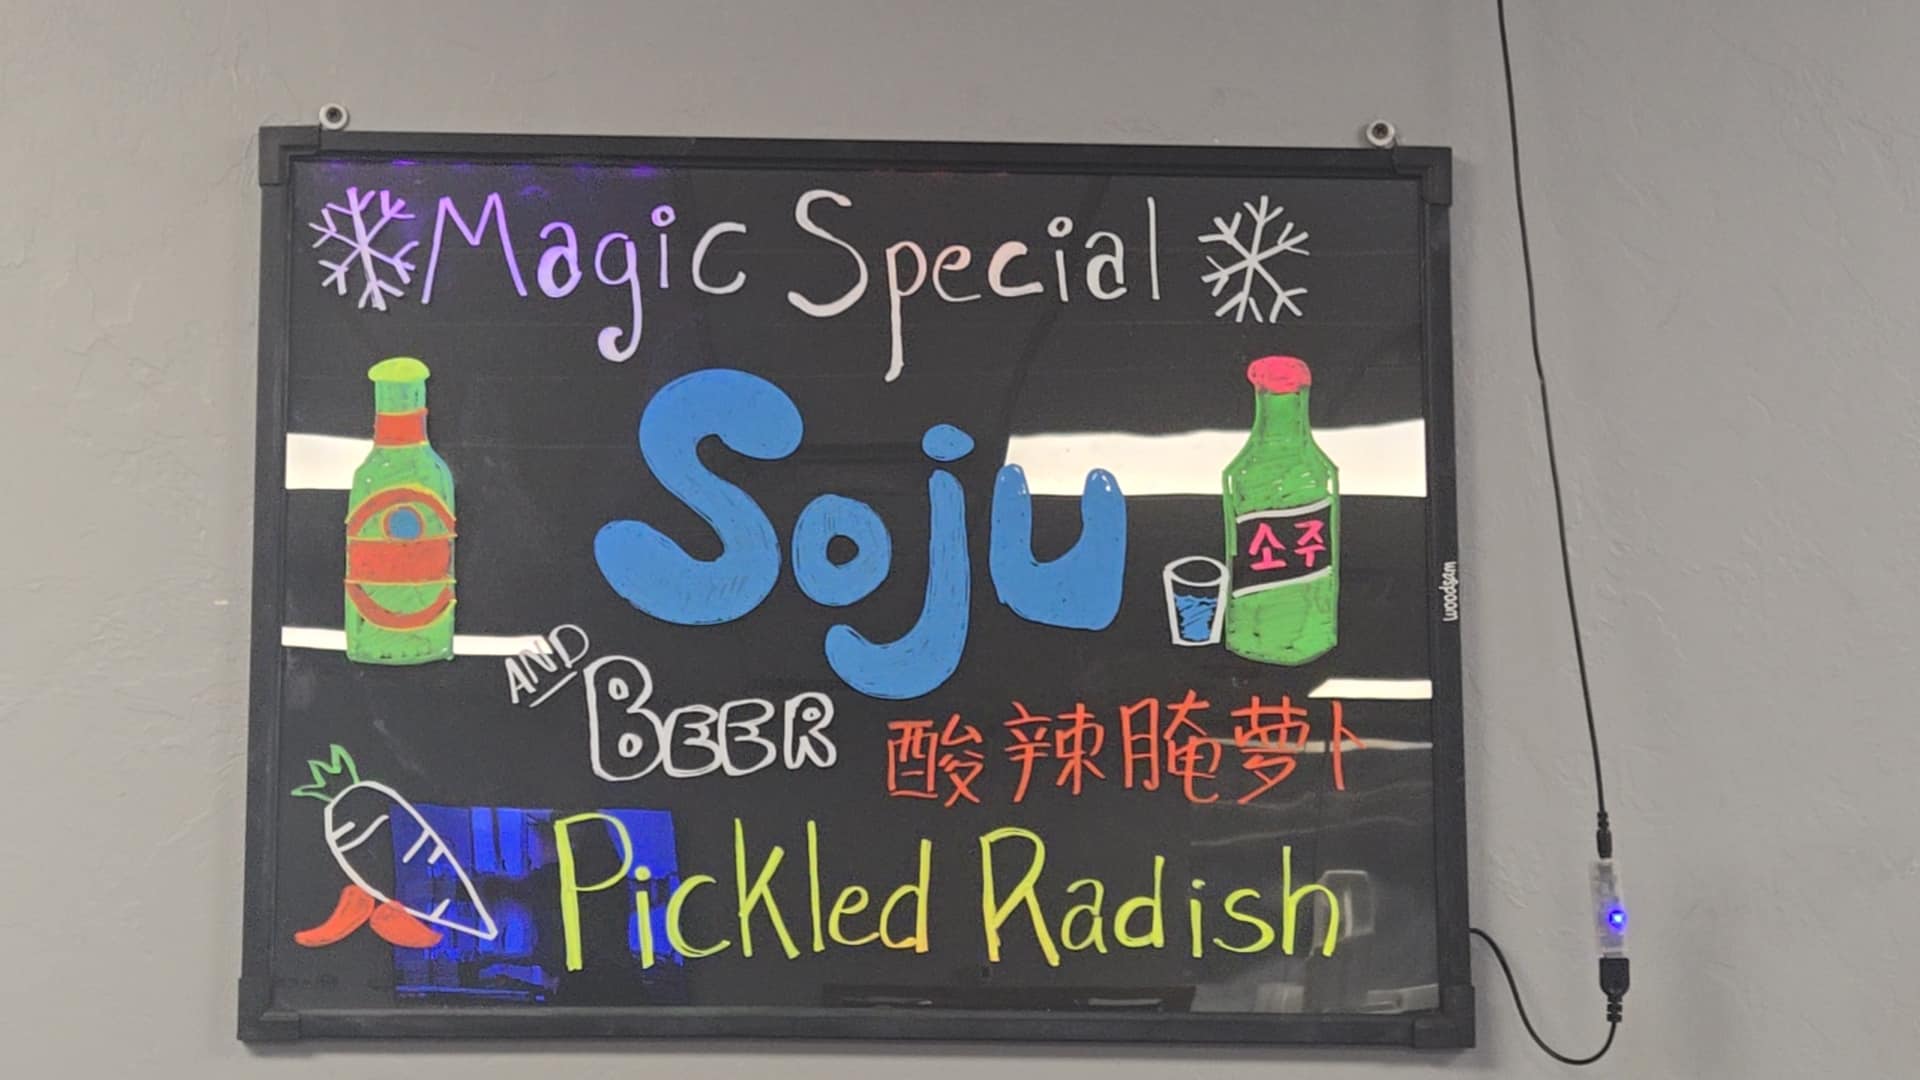 Magic Special
Soju
소주
AND
BEER
酸辣腌萝卜
Pickled Radish
woodsam